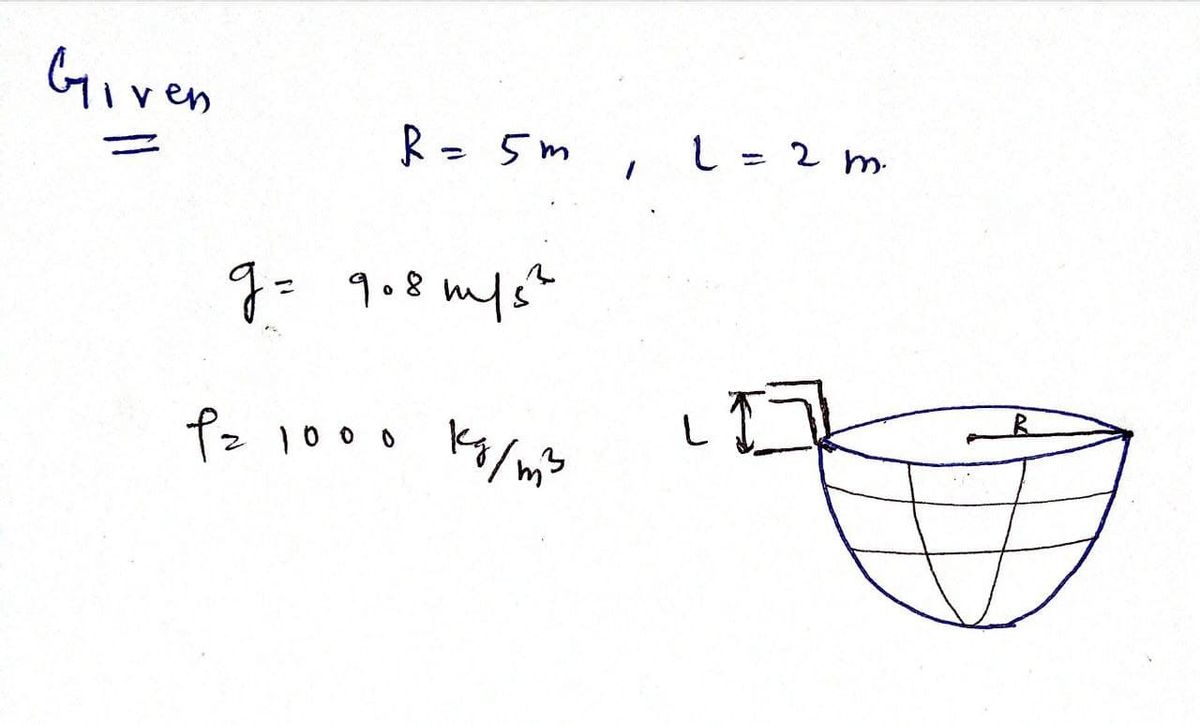 Given
R = 5 m , L = 2 m.
g = 9.8 m/s²
ρ = 1000 kg/m³
L
R